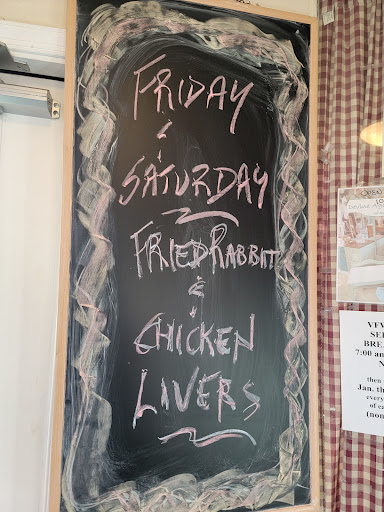 FRIDAY
&
SATURDAY
FRIED RABBIT
&
CHICKEN
LIVERS
OPEN
VFW
SER
BRE
7:00 an
N
then
Jan. th
every
of ea
(non